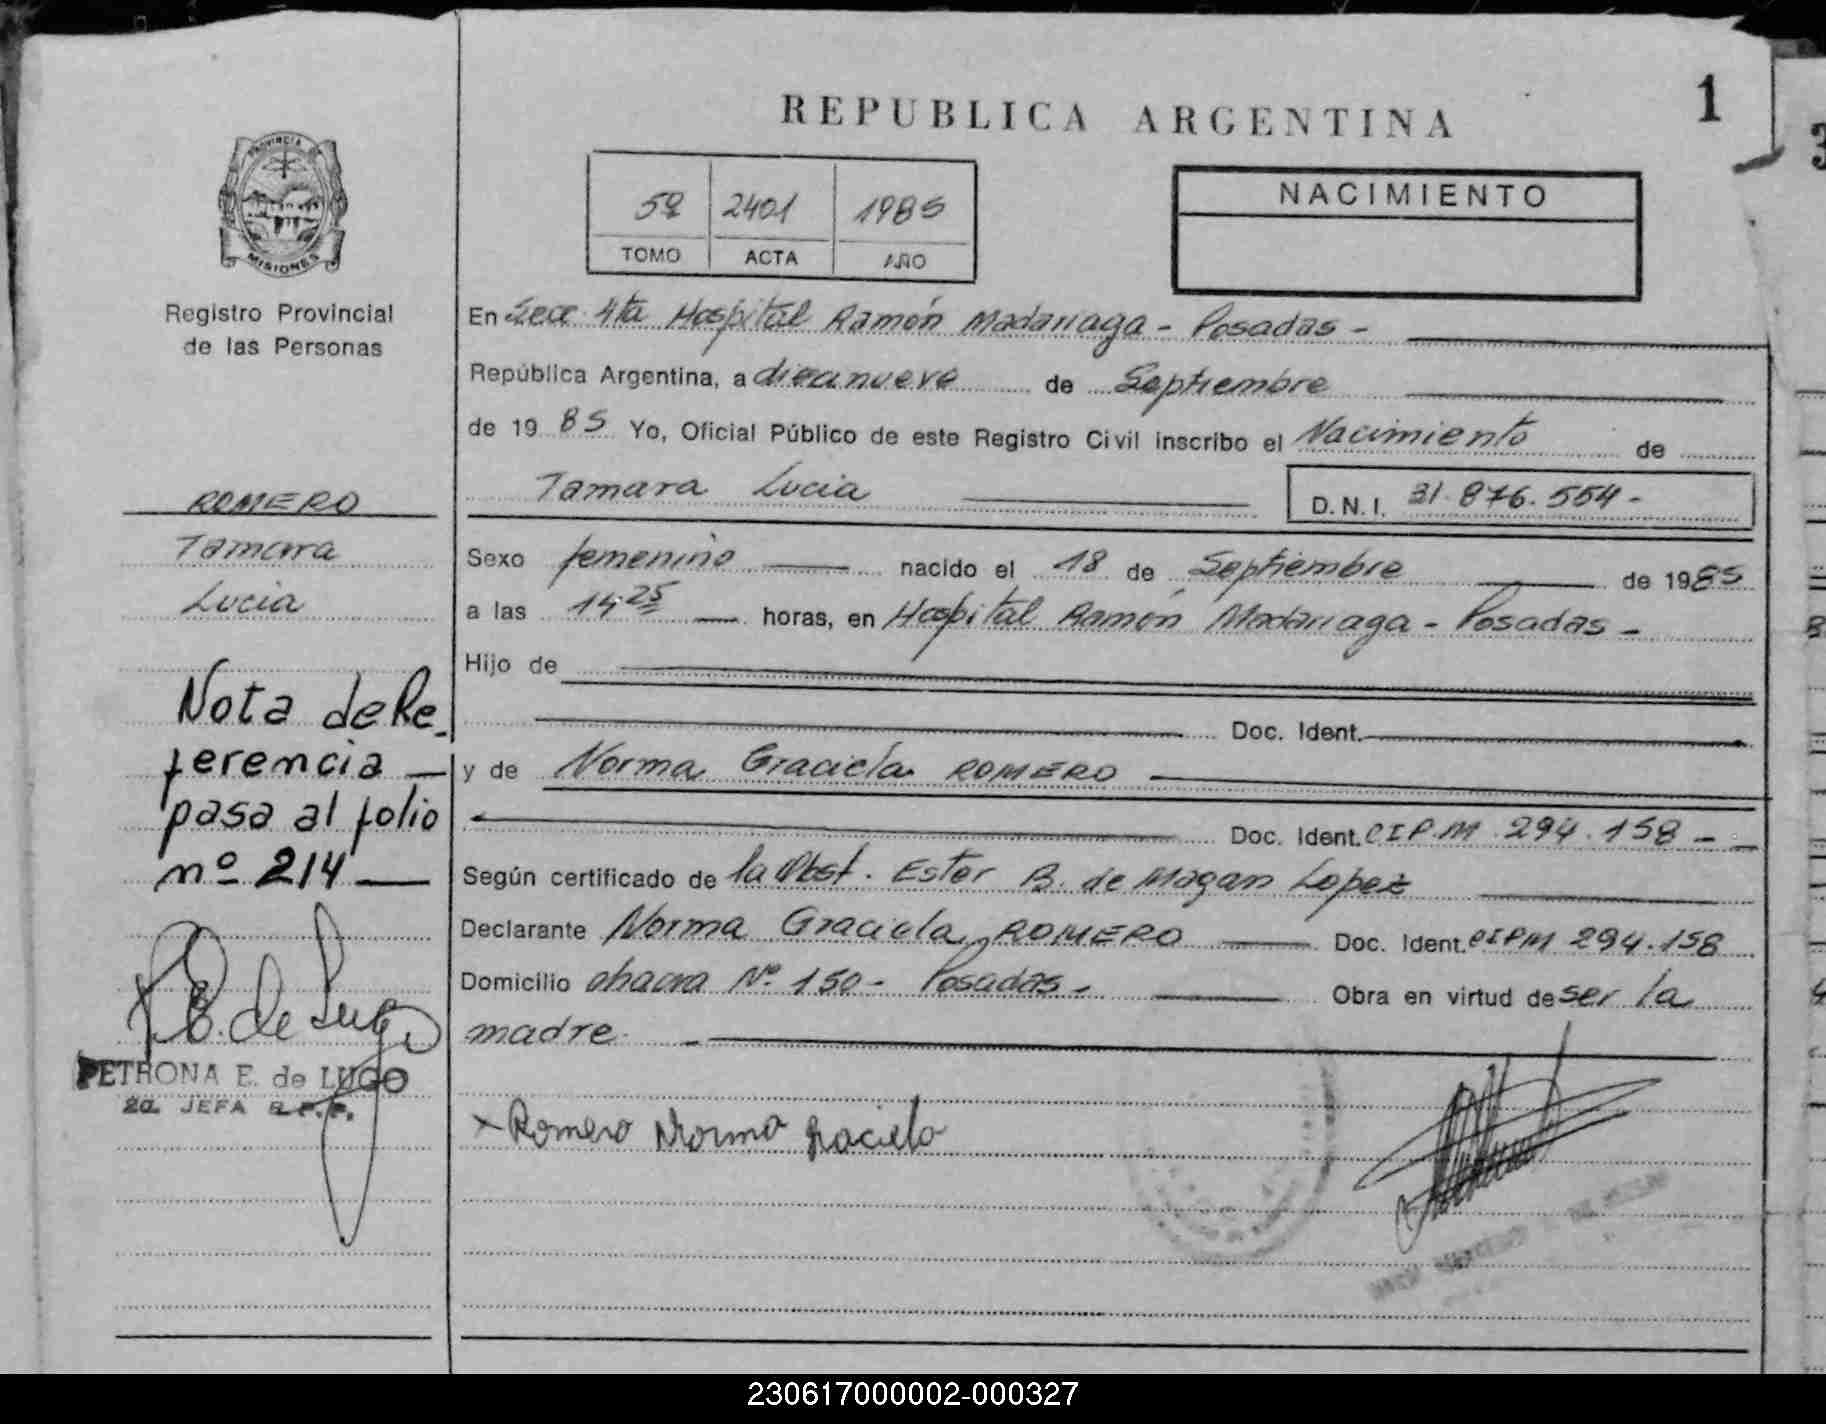 REPUBLICA ARGENTINA
1
PROVINCIA DE
MISIONES
Registro Provincial
de las Personas
5º 2401 1985
TOMO ACTA AÑO
NACIMIENTO
En Secc. 4ta Hospital Ramón Madariaga - Posadas -
República Argentina, a diecinueve de Septiembre
de 1985 Yo, Oficial Público de este Registro Civil inscribo el Nacimiento de
Tamara Lucia D.N.I. 31.876.554-
Sexo femenino nacido el 18 de Septiembre de 1985
a las 14 25 horas, en Hospital Ramón Madariaga - Posadas -
Hijo de
Doc. Ident.
y de Norma Graciela ROMERO
Doc. Ident. CIP.M. 294.158 -
Según certificado de la Obst. Ester B. de Magan Lopez
Declarante Norma Graciela ROMERO Doc. Ident. CIPM 294.158
Domicilio chacra Nº 150 - Posadas - Obra en virtud de ser la
madre
x Romero Norma Graciela
ROMERO
Tamara
Lucia
Nota de Re-
ferencia
pasa al folio
nº 214
P. E. de Lugo
PETRONA E. de LUGO
2a. JEFA R.P.P.
230617000002-000327